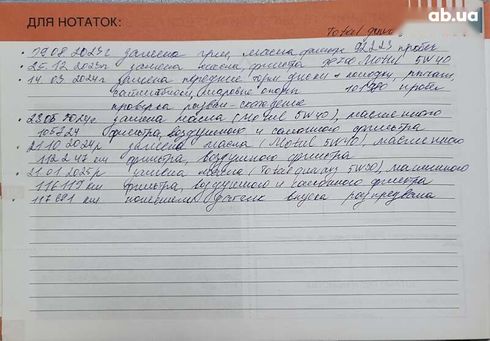 ДЛЯ НОТАТОК:
ab.ua
Total
19.08.2023г замена грм, масла фильтр 92223 пробег
25.12.2023г замена масла, фильтра Mobil 5W40
14.03.2024г замена передние торм диски + колодки, рычаги,
сайлентблоки, шаровые опоры 101980 пробег
проверка развал-схождение
23.05.2024г замена масла (Mobil 5W40), масленного
105324 фильтра, воздушного и салонного фильтра
21.10.2024г замена масла (Mobil 5W40), масленного
112247 км фильтра, воздушного фильтра
21.01.2025г замена масла (Total 5W30), масленного
116119 км фильтра, воздушного и салонного фильтра
117681 км датчик впуска распредвала